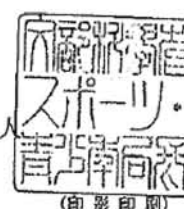 文部科学省
スポーツ・
青少年局長
(印影印刷)